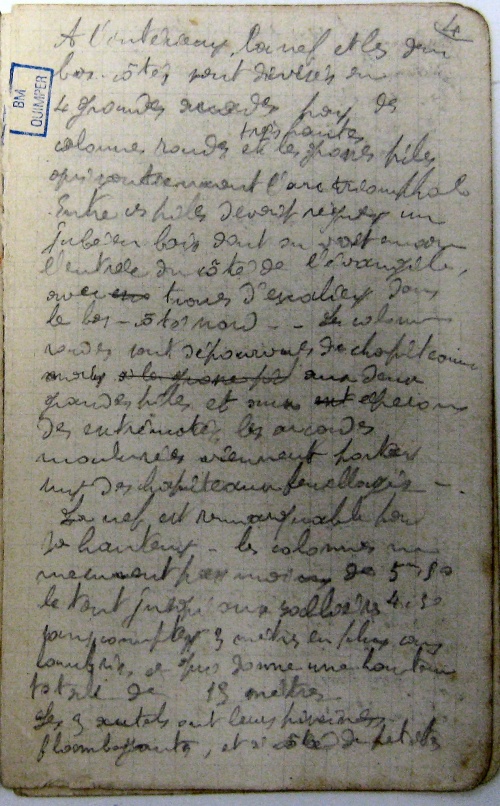 4
BM
QUIMPER
A l'intérieur, la nef et les deux
bas-côtés sont divisés en
4 grandes arcades par des
colonnes rondes très hautes et les grosses piles
qui soutiennent l'arc triomphal
Entre ces piles devait régner un
jubé en bois dont on voit encore
l'entrée du côté de l'évangile,
avec traces d'escalier dans
le bas-côté nord - Les colonnes
rondes sont dépourvues de chapiteaux
mais aux deux
grandes piles et aux éperons
des extrémités les arcades
moulurées viennent porter
sur des chapiteaux feuillagés -
La nef est remarquable pour
sa hauteur - les colonnes ne
mesurent pas moins de 5m,50
le tout jusqu'aux sablières 4,50
sans compter 3 mètres en plus
lambris, ce qui donne une hauteur
totale de 13 mètres
Les 3 autels ont leurs piscines
flamboyantes, et à côté de petits